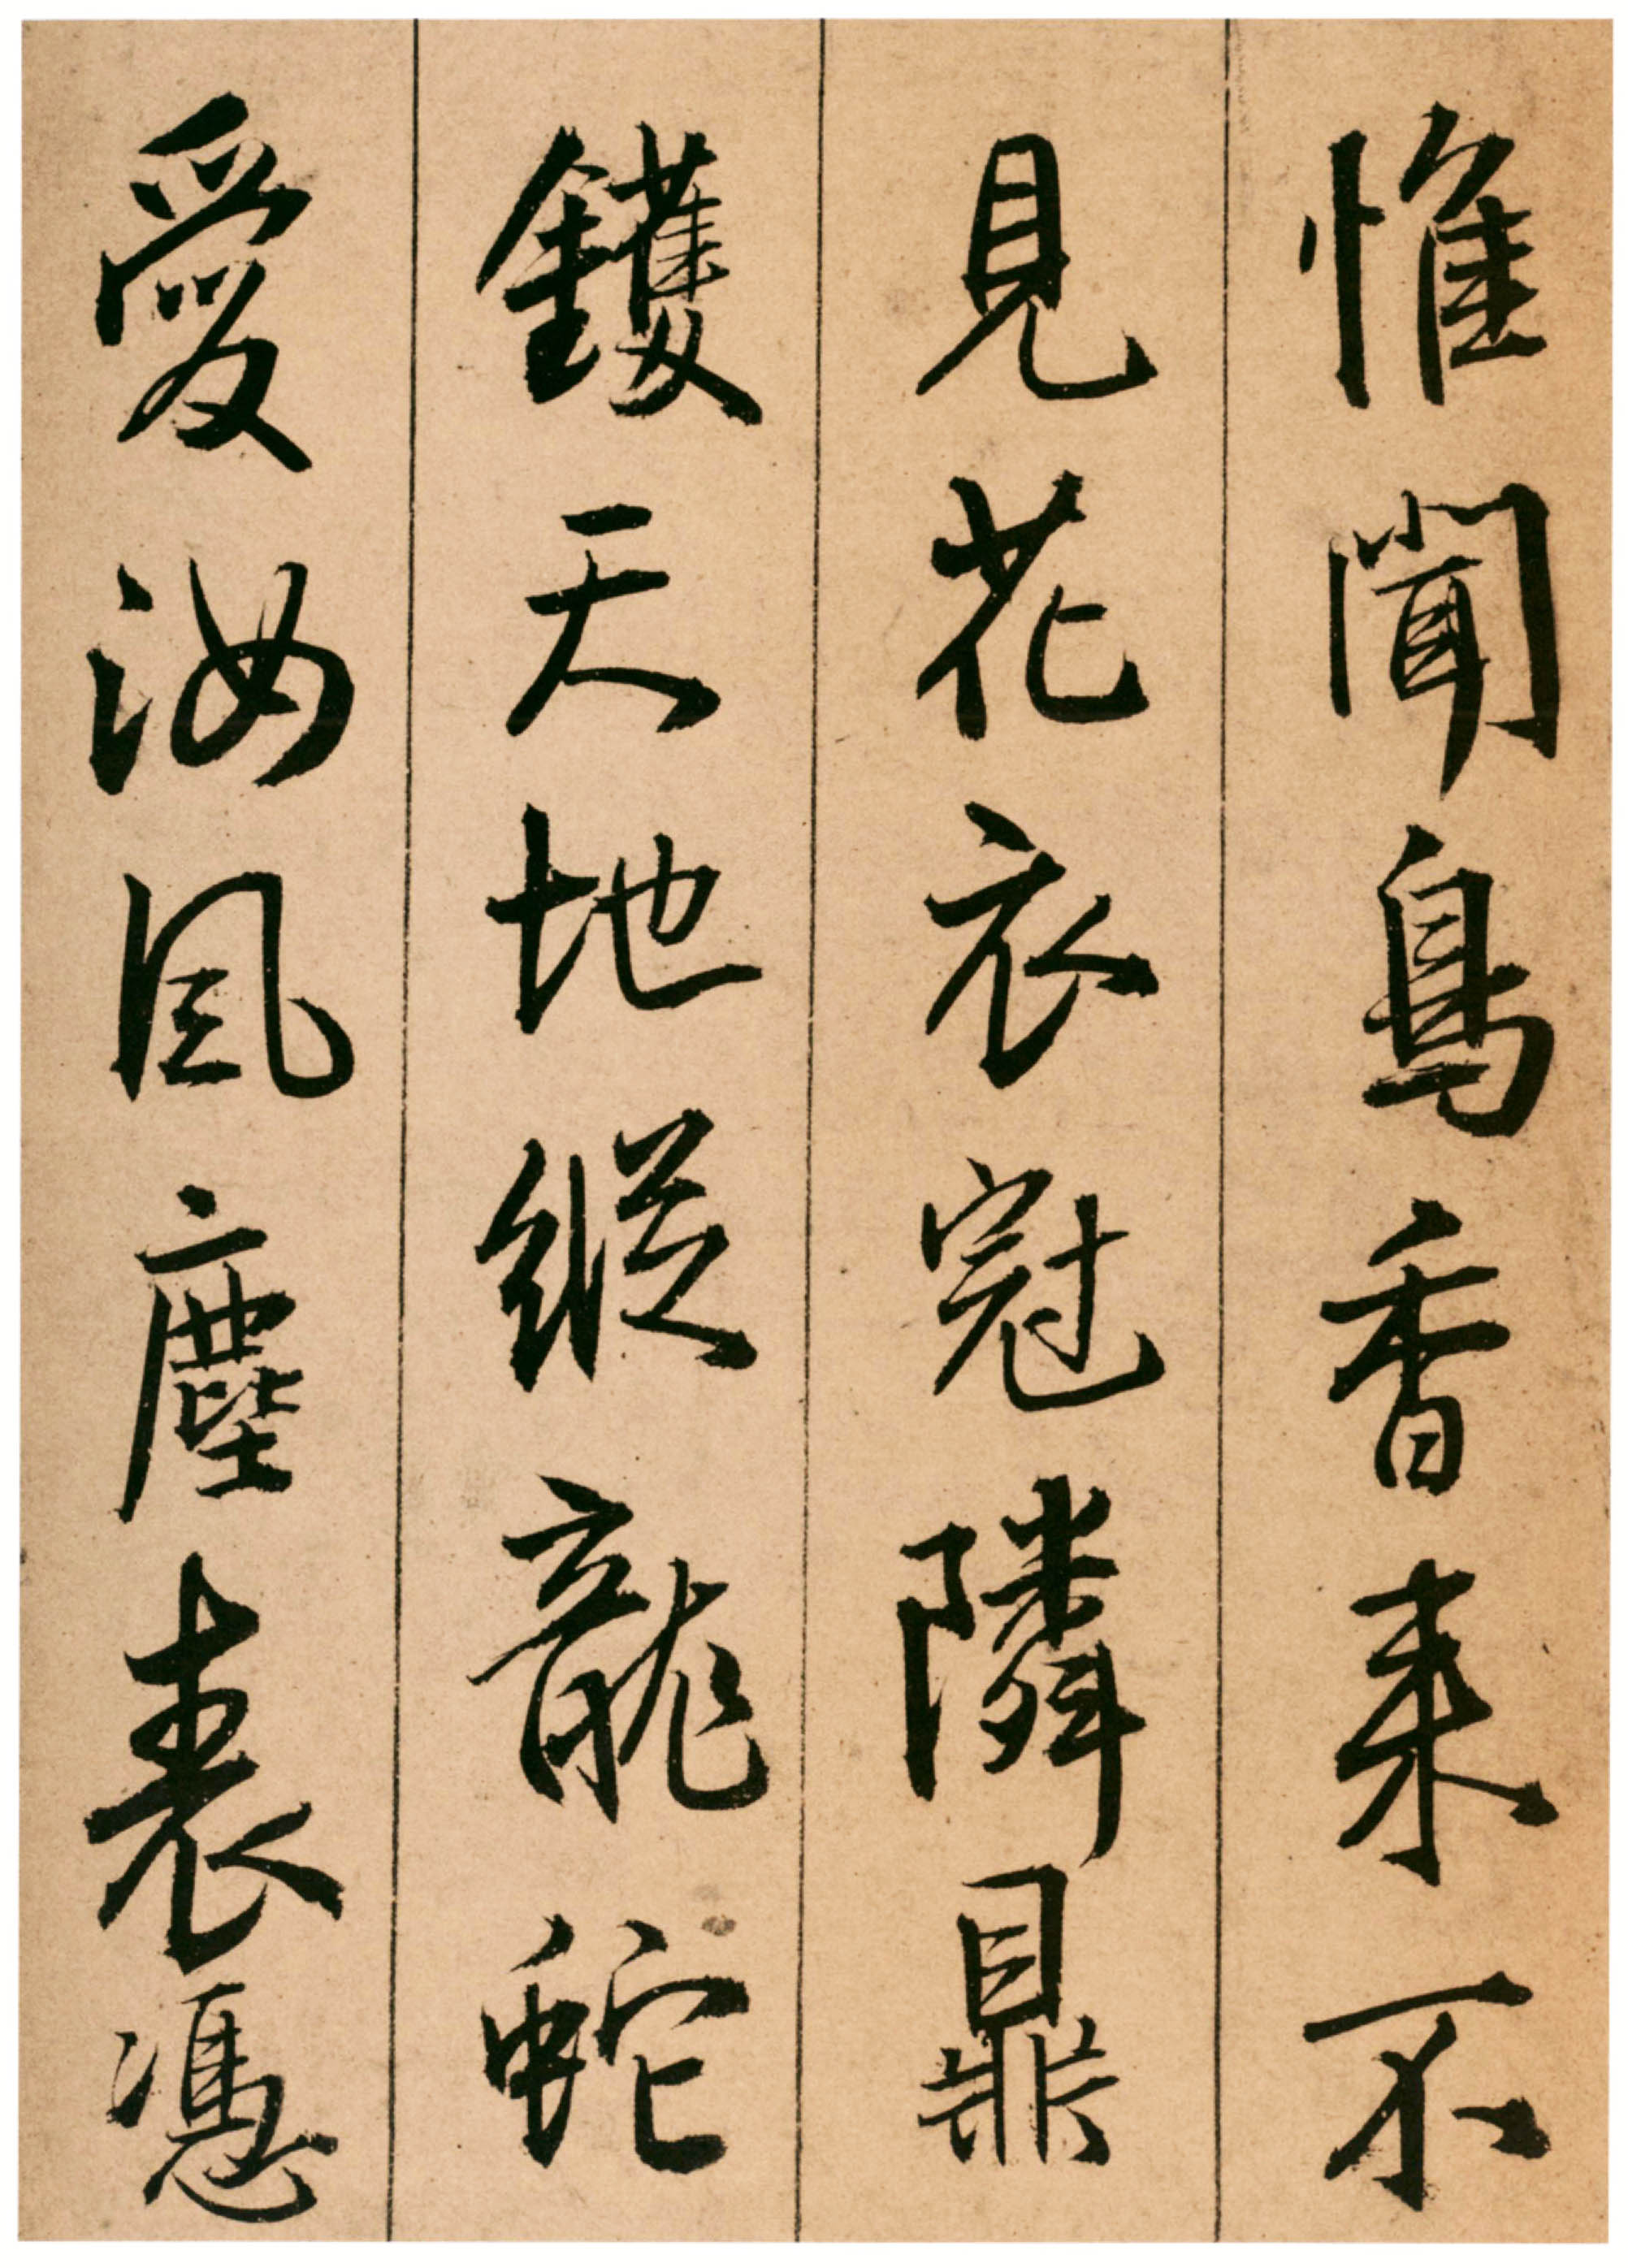 惟聞鳥香来不
見花衣冠隣鼎
鑊天地縱龍蛇
愛汝風塵表憑